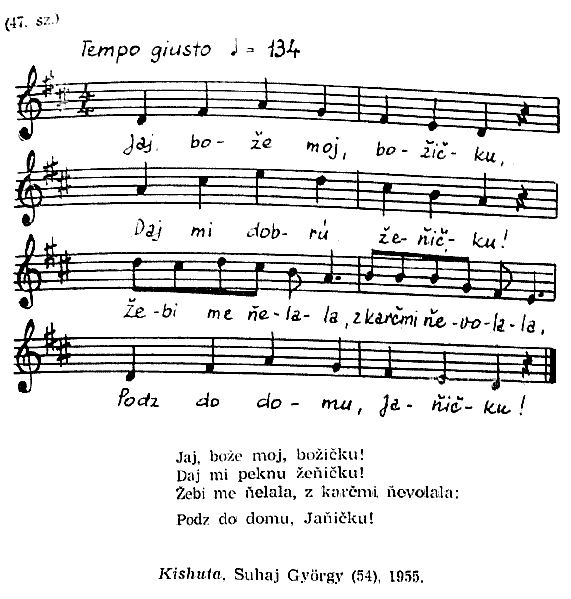 (47. sz.)
Tempo giusto ♩ = 134
Jaj, bo- že moj, bo- žič- ku,
Daj mi dob- rú že- ňič- ku!
Že-bi me ňe-la-la, z karčmi ňe-vo-la-la,
Podz do do- mu, Ja- ňič- ku!
Jaj, bože moj, božičku!
Daj mi peknu žeňičku!
Žebi me ňelala, z karčmi ňevolala:
Podz do domu, Jaňičku!
Kishuta, Suhaj György (54), 1955.